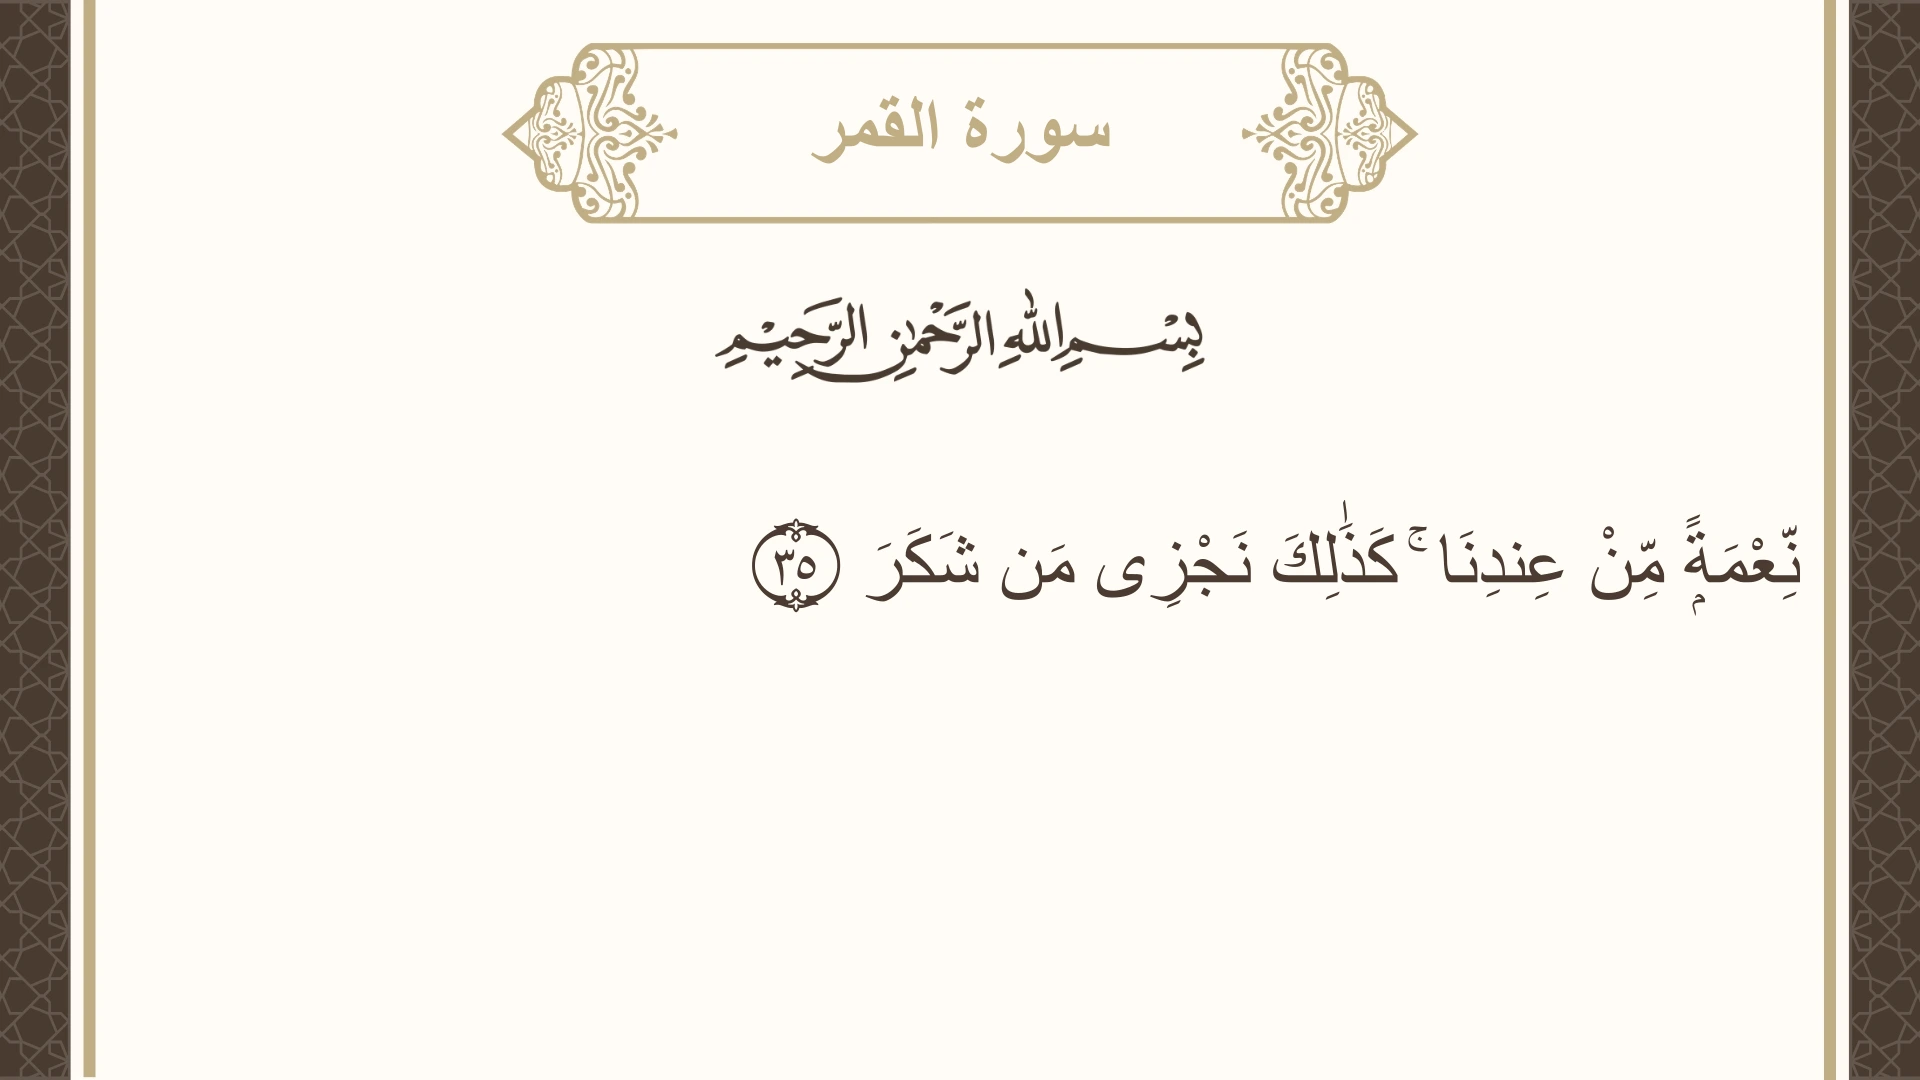 سورة القمر
بِسْمِ اللهِ الرَّحْمٰنِ الرَّحِيْمِ
نِّعْمَةًۭ مِّنْ عِندِنَا ۚ كَذَٰلِكَ نَجْزِى مَن شَكَرَ ٣٥